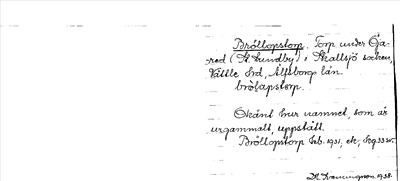 Bröllopstorp. Torp under Öja-
red (St Lundby) i Skallsjö socken,
Vättle hd, Älfsborgs län.
brölapstorp.
Okänt hur namnet, som är
urgammalt, uppstått.
Bröllopstorp hfb. 1931, ek, Seg 33 sv.
1938.